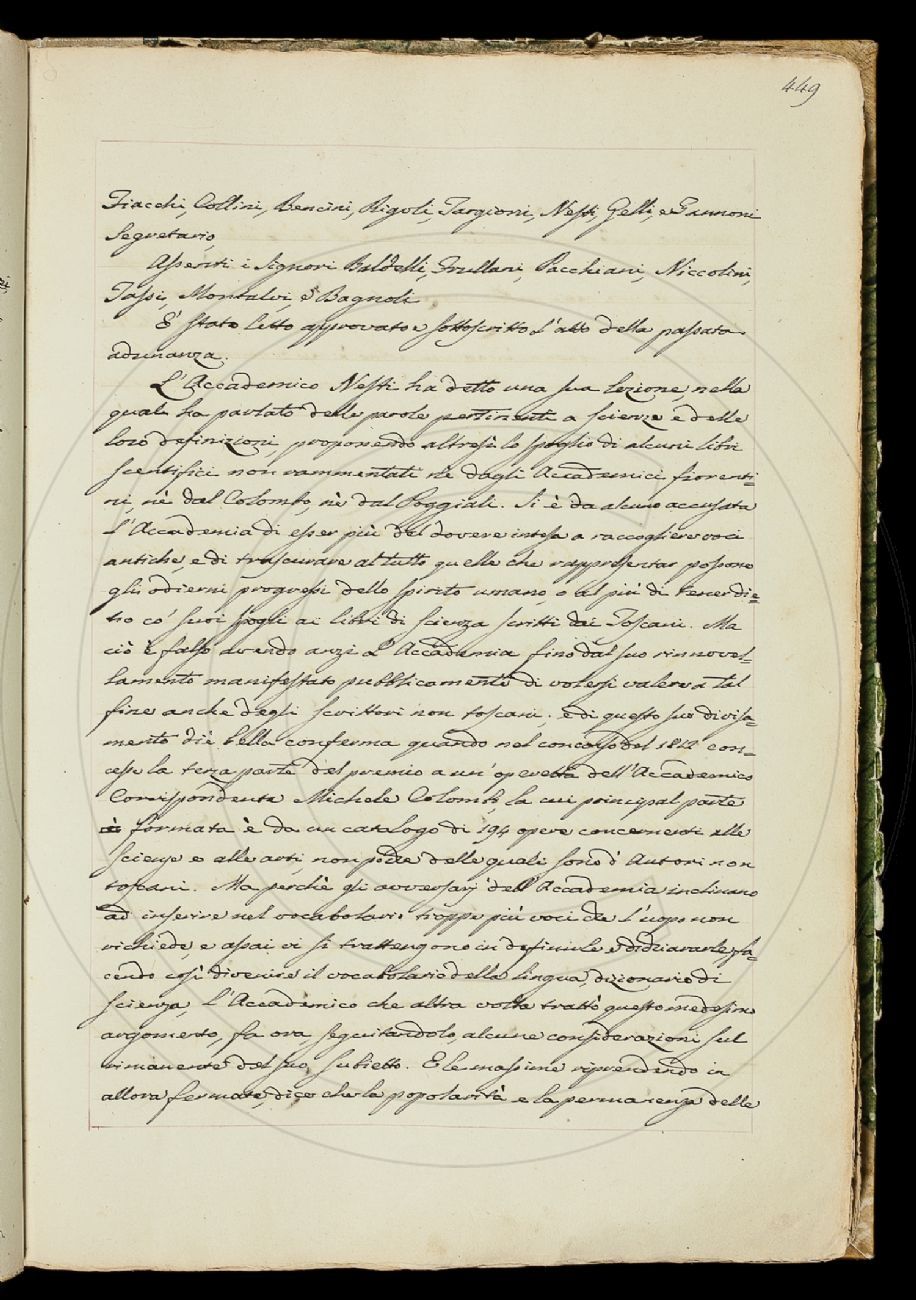 449
Fiacchi, Collini, Bencini, Rigoli, Targioni, Nesti, Gelli, e Zannoni
Segretario,
Assenti i Signori Baldelli, Frullani, Pacchiani, Niccolini,
Tassi, Montalvi, e Bagnoli.
E' stato letto approvato e sottoscritto l'atto della passata
adunanza.
L'Accademico Nesti ha detto una sua lezione, nella
quale ha parlato delle parole pertinenti a scienze e delle
loro definizioni, proponendo altresì lo spoglio di alcuni libri
scentifici non rammentati nè dagli Accademici fiorenti=
ni, nè dal Colombo, nè dal Poggiali. Si è da alcuno accusata
l'Accademia di esser più del dovere intesa a raccogliere voci
antiche e di trascurare al tutto quelle che rappresentar possono
gli odierni progressi dello spirito umano, o al più di tener die=
tro co' suoi spogli ai libri di scienza scritti dai Toscani. Ma
ciò è falso avendo anzi l'Accademia fino dal suo rinnovel=
lamento manifestato pubblicamente di volersi valere a tal
fine anche degli scrittori non toscani. e di questo suo divisa=
mento diè bella conferma quando nel concorso del 1812 con=
cesse la terza parte del premio a un'operetta dell'Accademico
Corrispondente Michele Colombo, la cui principal parte
è formata è da un catalogo di 194 opere concernenti alle
scienze e alle arti, non poche delle quali sono d'Autori non
toscani. Ma perchè gli avversarj dell'Accademia inclinano
ad inserire nel vocabolario troppe più voci che l'uopo non
richiede, e assai vi si trattengono in definirle e dichiararle, fa=
cendo così divenire il vocabolario della lingua, dizionario di
scienza, l'Accademico che altra volta trattò questo medesimo
argomento, fa ora, seguitandolo, alcune considerazioni sul
rimanente del suo subietto. E le massime riprendendo in
allora fermate, dice che la popolarità e la permanenza delle